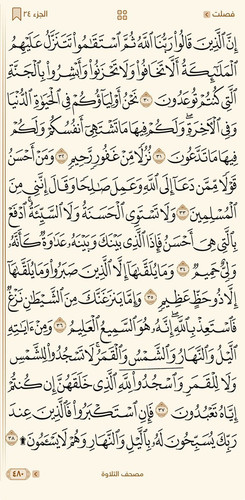 فصلت الجزء ٢٤
إِنَّ ٱلَّذِينَ قَالُواْ رَبُّنَا ٱللَّهُ ثُمَّ ٱسۡتَقَٰمُواْ تَتَنَزَّلُ عَلَيۡهِمُ
ٱلۡمَلَٰٓئِكَةُ أَلَّا تَخَافُواْ وَلَا تَحۡزَنُواْ وَأَبۡشِرُواْ بِٱلۡجَنَّةِ
ٱلَّتِي كُنتُمۡ تُوعَدُونَ ٣٠ نَحۡنُ أَوۡلِيَآؤُكُمۡ فِي ٱلۡحَيَوٰةِ ٱلدُّنۡيَا
وَفِي ٱلۡأٓخِرَةِۖ وَلَكُمۡ فِيهَا مَا تَشۡتَهِيٓ أَنفُسُكُمۡ وَلَكُمۡ
فِيهَا مَا تَدَّعُونَ ٣١ نُزُلٗا مِّنۡ غَفُورٖ رَّحِيمٖ ٣٢ وَمَنۡ أَحۡسَنُ
قَوۡلٗا مِّمَّن دَعَآ إِلَى ٱللَّهِ وَعَمِلَ صَٰلِحٗا وَقَالَ إِنَّنِي مِنَ
ٱلۡمُسۡلِمِينَ ٣٣ وَلَا تَسۡتَوِي ٱلۡحَسَنَةُ وَلَا ٱلسَّيِّئَةُۚ ٱدۡفَعۡ
بِٱلَّتِي هِيَ أَحۡسَنُ فَإِذَا ٱلَّذِي بَيۡنَكَ وَبَيۡنَهُۥ عَدَٰوَةٞ كَأَنَّهُۥ
وَلِيٌّ حَمِيمٞ ٣٤ وَمَا يُلَقَّىٰهَآ إِلَّا ٱلَّذِينَ صَبَرُواْ وَمَا يُلَقَّىٰهَآ
إِلَّا ذُو حَظٍّ عَظِيمٖ ٣٥ وَإِمَّا يَنزَغَنَّكَ مِنَ ٱلشَّيۡطَٰنِ نَزۡغٞ
فَٱسۡتَعِذۡ بِٱللَّهِۖ إِنَّهُۥ هُوَ ٱلسَّمِيعُ ٱلۡعَلِيمُ ٣٦ وَمِنۡ ءَايَٰتِهِ
ٱلَّيۡلُ وَٱلنَّهَارُ وَٱلشَّمۡسُ وَٱلۡقَمَرُۚ لَا تَسۡجُدُواْ لِلشَّمۡسِ
وَلَا لِلۡقَمَرِ وَٱسۡجُدُواْۤ لِلَّهِۤ ٱلَّذِي خَلَقَهُنَّ إِن كُنتُمۡ
إِيَّاهُ تَعۡبُدُونَ ٣٧ فَإِنِ ٱسۡتَكۡبَرُواْ فَٱلَّذِينَ عِندَ
رَبِّكَ يُسَبِّحُونَ لَهُۥ بِٱلَّيۡلِ وَٱلنَّهَارِ وَهُمۡ لَا يَسۡـَٔمُونَ۩ ٣٨
مصحف التلاوة ٤٨٠